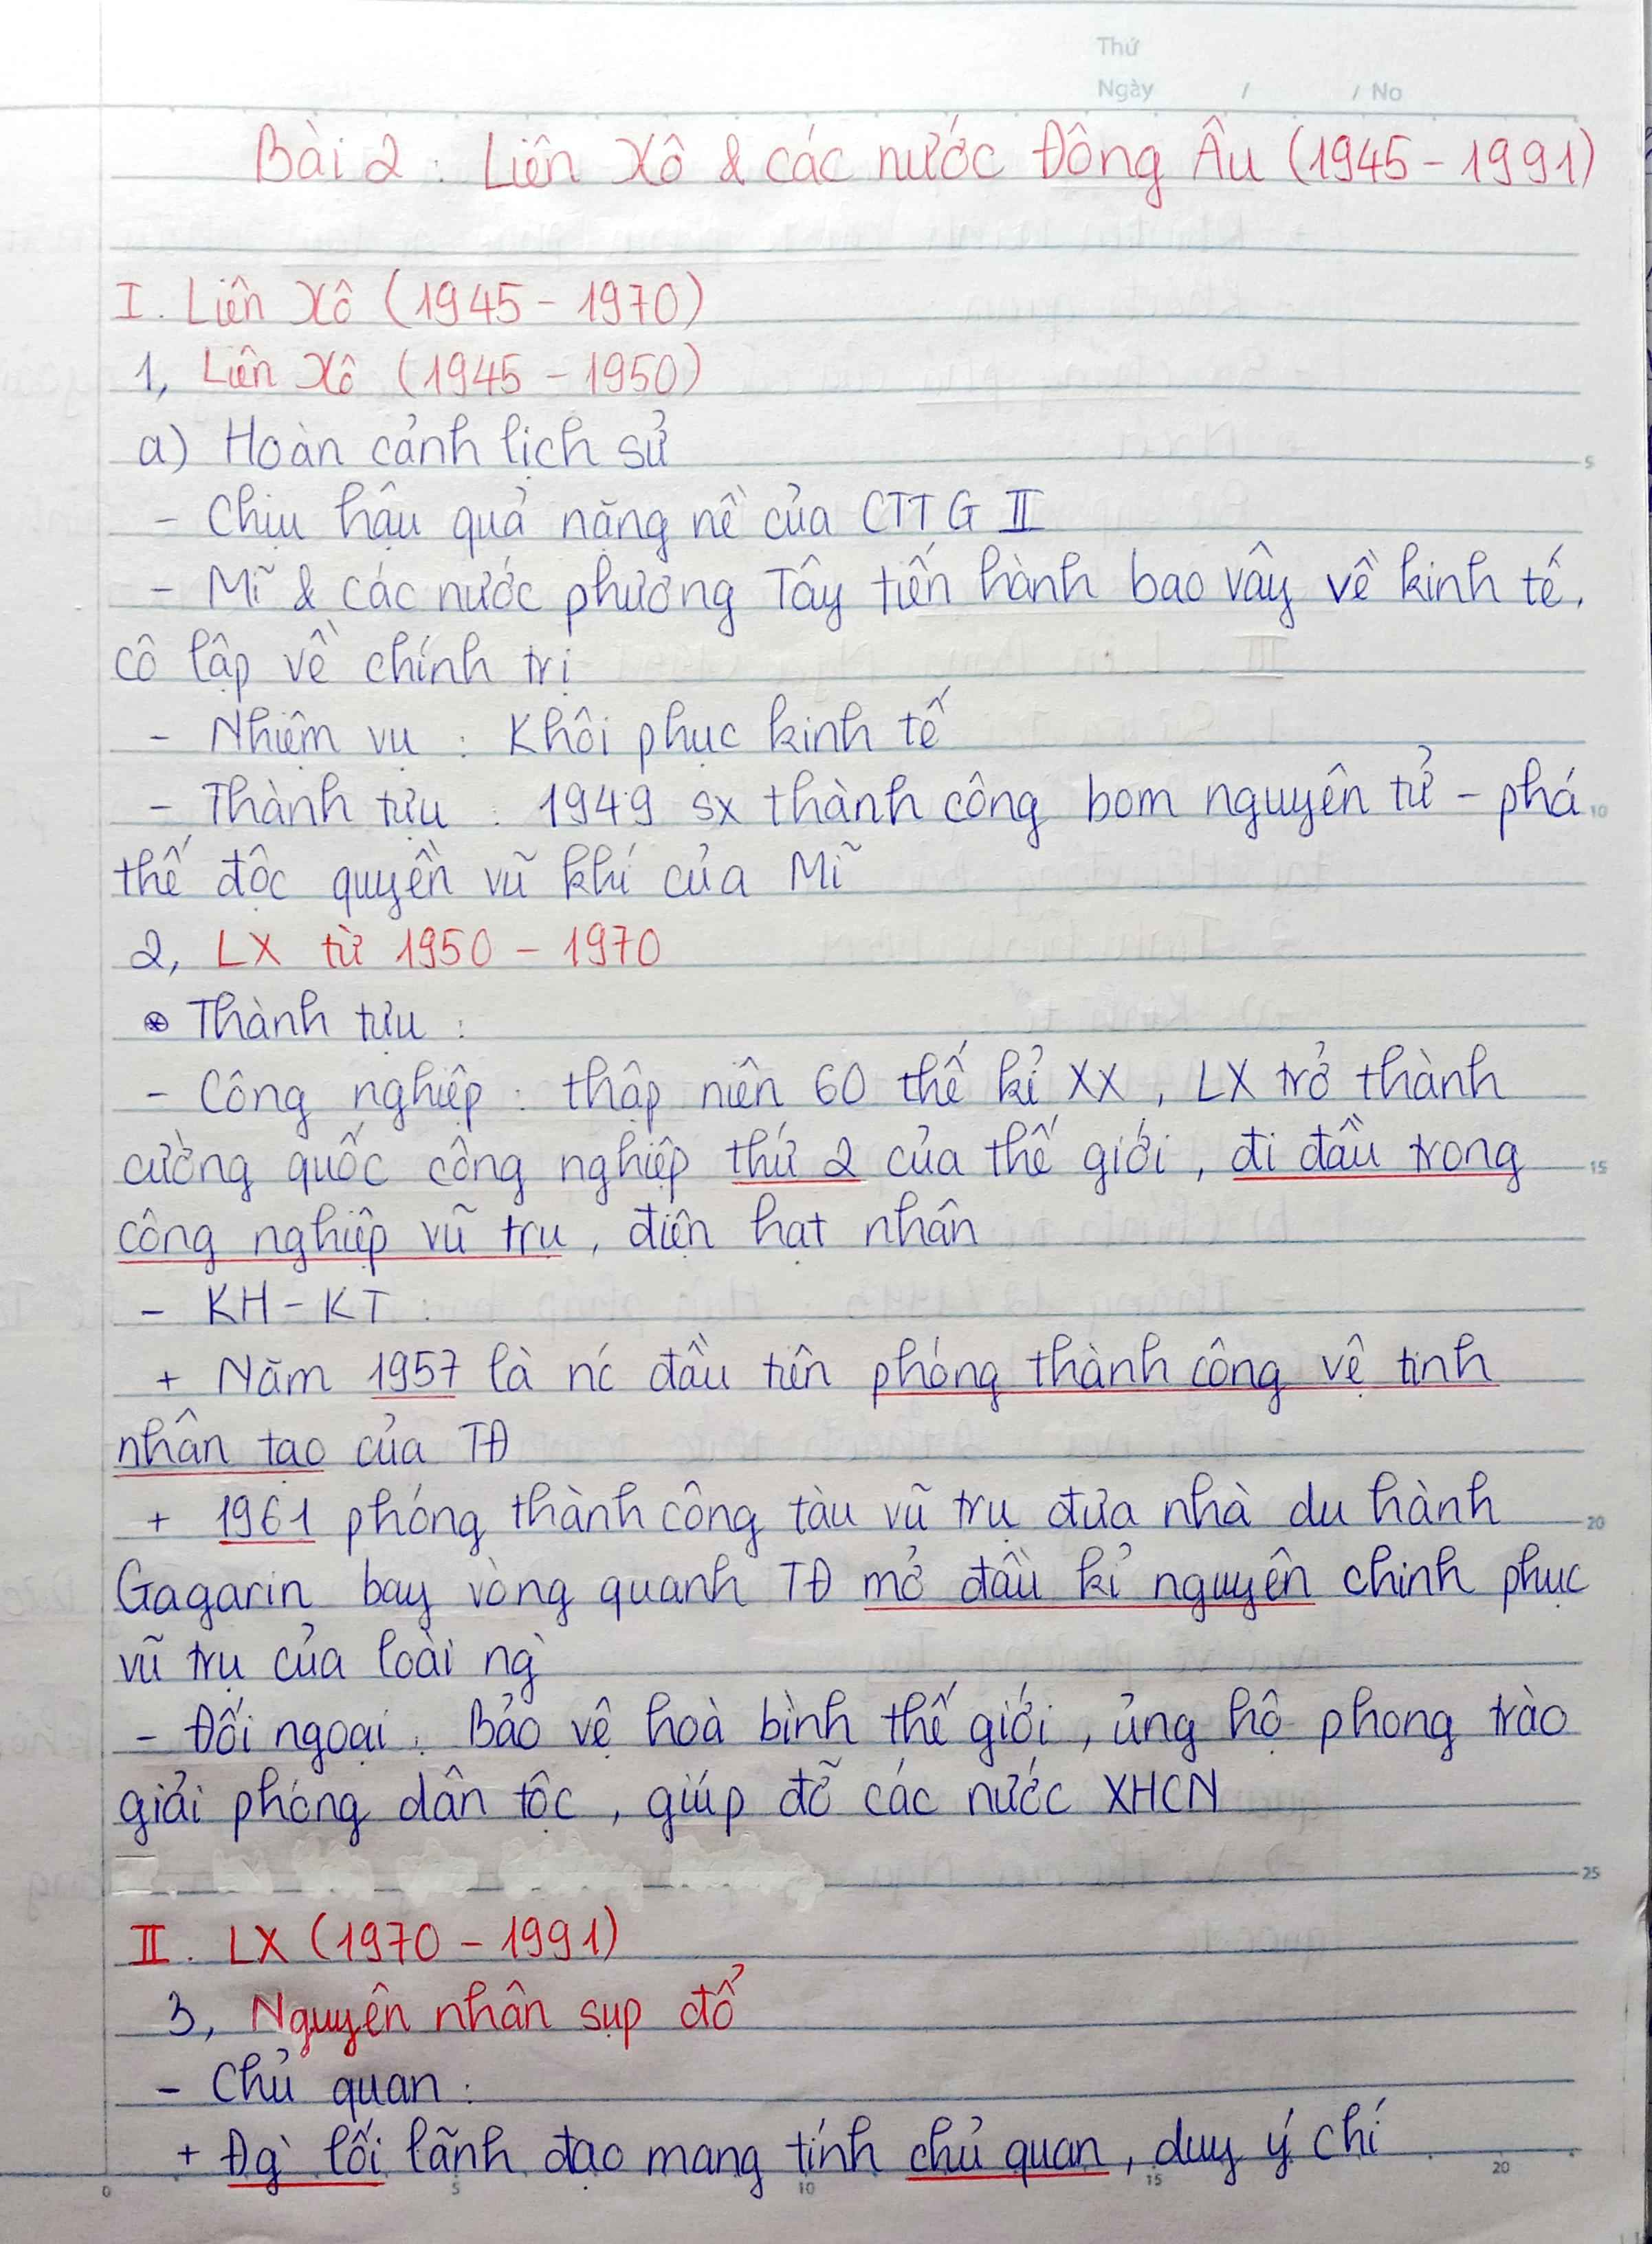 Thứ
Ngày / / No
Bài 2 : Liên Xô & các nước Đông Âu (1945 - 1991)
I. Liên Xô (1945 - 1970)
1, Liên Xô (1945 - 1950)
a) Hoàn cảnh lịch sử
5
- Chịu hậu quả nặng nề của CTTG II
- Mĩ & các nước phương Tây tiến hành bao vây về kinh tế,
cô lập về chính trị
- Nhiệm vụ : Khôi phục kinh tế
- Thành tựu : 1949 sx thành công bom nguyên tử - phá
10
thế độc quyền vũ khí của Mĩ
2, LX từ 1950 - 1970
* Thành tựu :
- Công nghiệp : thập niên 60 thế kỉ XX, LX trở thành
cường quốc công nghiệp thứ 2 của thế giới, đi đầu trong
15
công nghiệp vũ trụ, điện hạt nhân
- KH - KT :
+ Năm 1957 là nc đầu tiên phóng thành công vệ tinh
nhân tạo của TĐ
+ 1961 phóng thành công tàu vũ trụ đưa nhà du hành
20
Gagarin bay vòng quanh TĐ mở đầu kỉ nguyên chinh phục
vũ trụ của loài ng`
- Đối ngoại : Bảo vệ hoà bình thế giới, ủng hộ phong trào
giải phóng dân tộc, giúp đỡ các nước XHCN
25
II. LX (1970 - 1991)
3, Nguyên nhân sụp đổ
- Chủ quan :
+ Đg` lối lãnh đạo mang tính chủ quan, duy ý chí
0 5 10 15 20